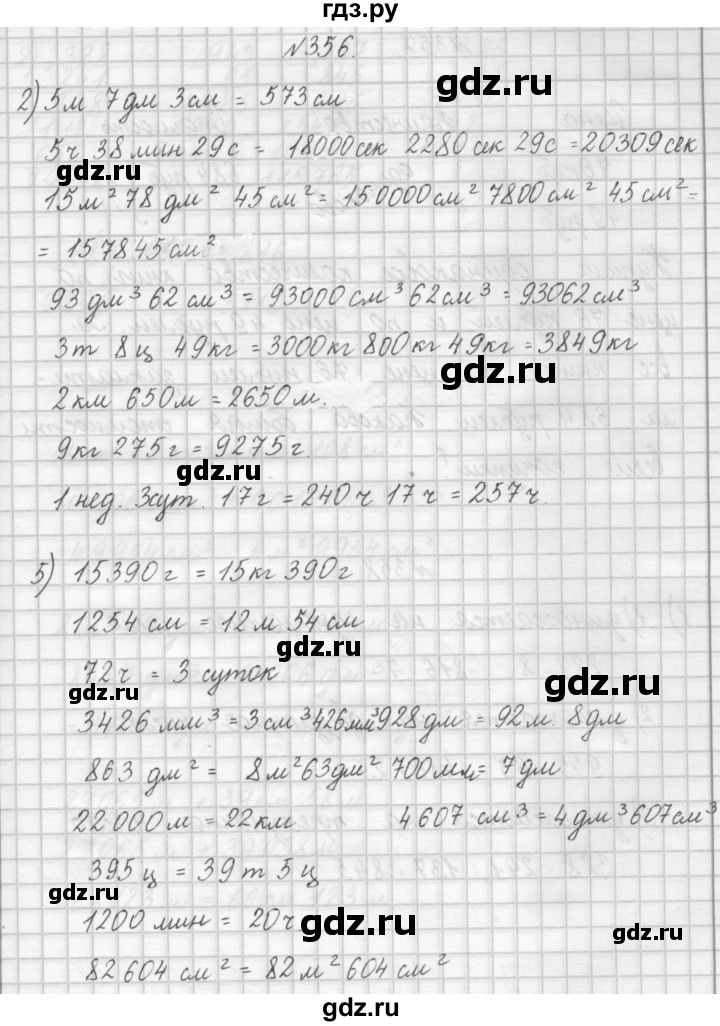 гдз.ру
№356.
gdz.ru
2) 5м 7дм 3см = 573см
5ч 38 мин 29с = 18000сек 2280сек 29с = 20309сек
gdz.ru
15м² 78 дм² 45 см² = 150000см² 7800см² 45 см² =
= 157845см²
gdz.ru
93 дм³ 62 см³ = 93000см³ 62см³ = 93062см³
3т 8ц 49кг = 3000кг 800кг 49кг = 3849кг
gdz.ru
2км 650м = 2650м.
9кг 275г = 9275г.
gdz.ru
1 нед. 3сут. 17г = 240ч 17ч = 257ч.
5) 15390г = 15кг 390г
1254 см = 12м 54см
gdz.ru
72ч = 3 суток
gdz.ru
gdz.ru
3426 мм³ = 3см³ 426мм³ 928дм = 92м. 8дм
863 дм² = 8м² 63дм² 700мм = 7дм
gdz.ru
gdz.ru
22000м = 22км 4607 см³ = 4дм³ 607см³
395ц = 39т 5ц
gdz.ru
1200 мин = 20ч
gdz.ru
gdz.ru
82604 см² = 82м² 604см²
gdz.ru
gdz.ru